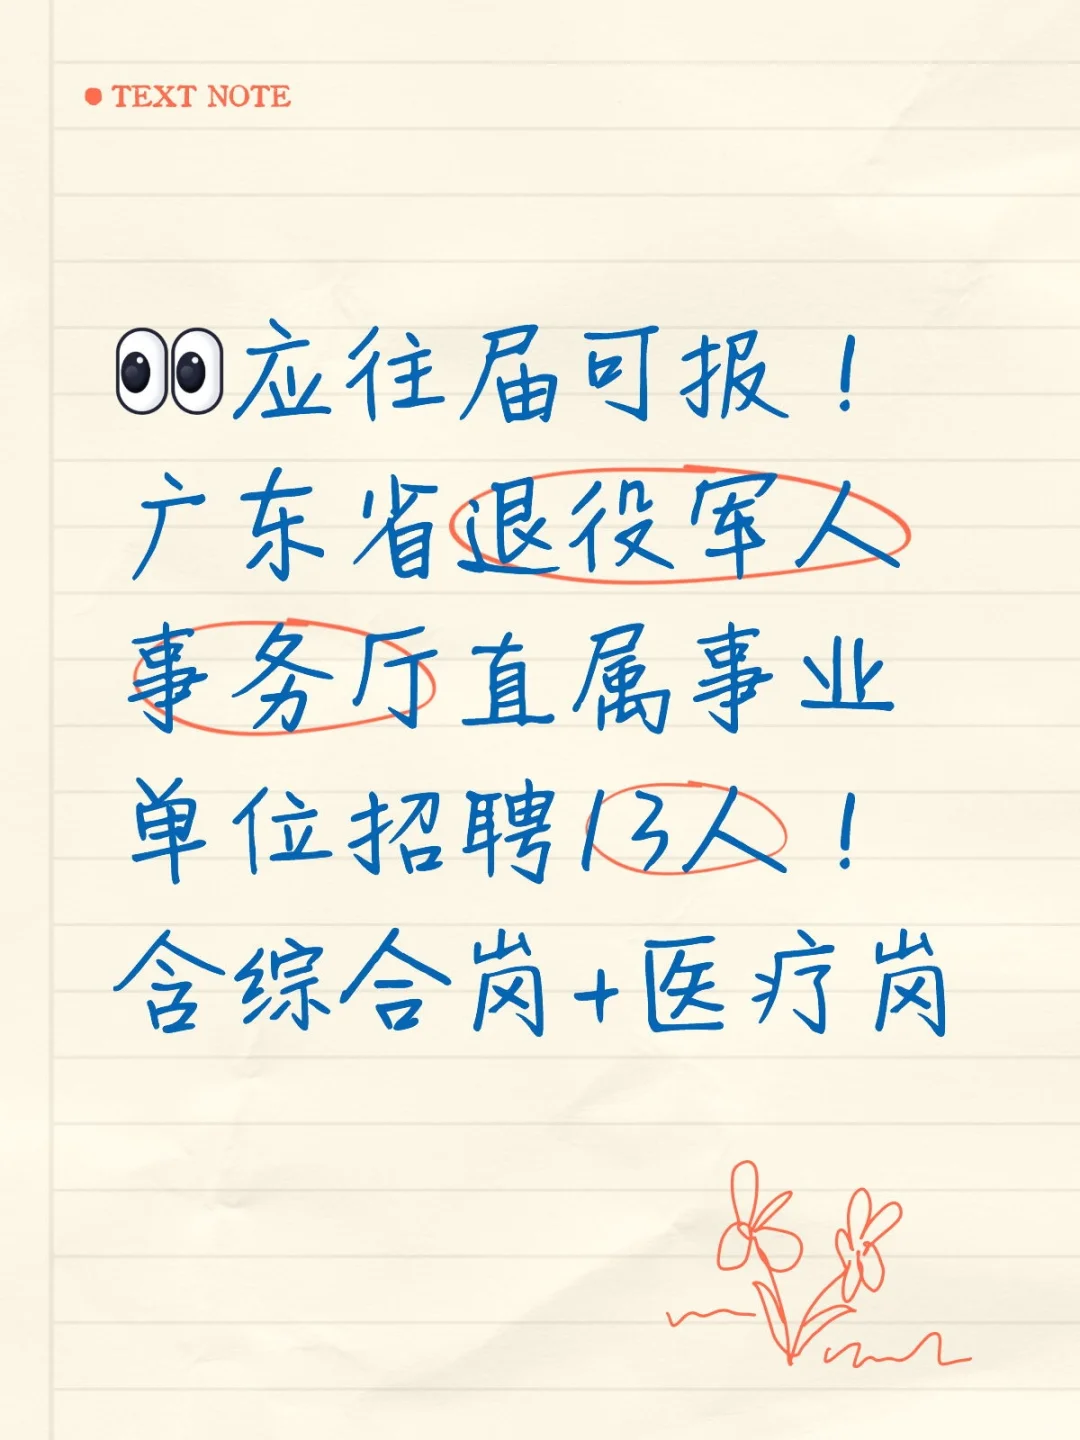 TEXT NOTE
👀应往届可报！
广东省退役军人
事务厅直属事业
单位招聘13人！
含综合岗+医疗岗